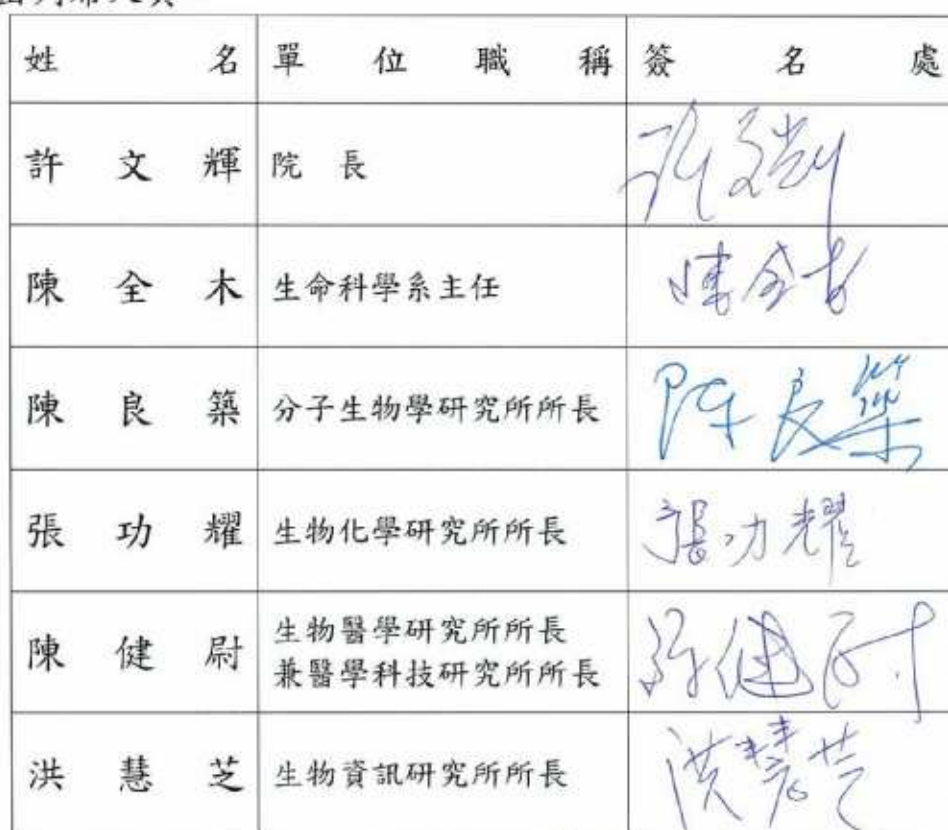 姓 名 單 位 職 稱 簽 名 處
許 文 輝 院 長 許文輝
陳 全 木 生命科學系主任 陳全木
陳 良 築 分子生物學研究所所長 陳良築
張 功 耀 生物化學研究所所長 張功耀
陳 健 尉 生物醫學研究所所長
兼醫學科技研究所所長 陳健尉
洪 慧 芝 生物資訊研究所所長 洪慧芝